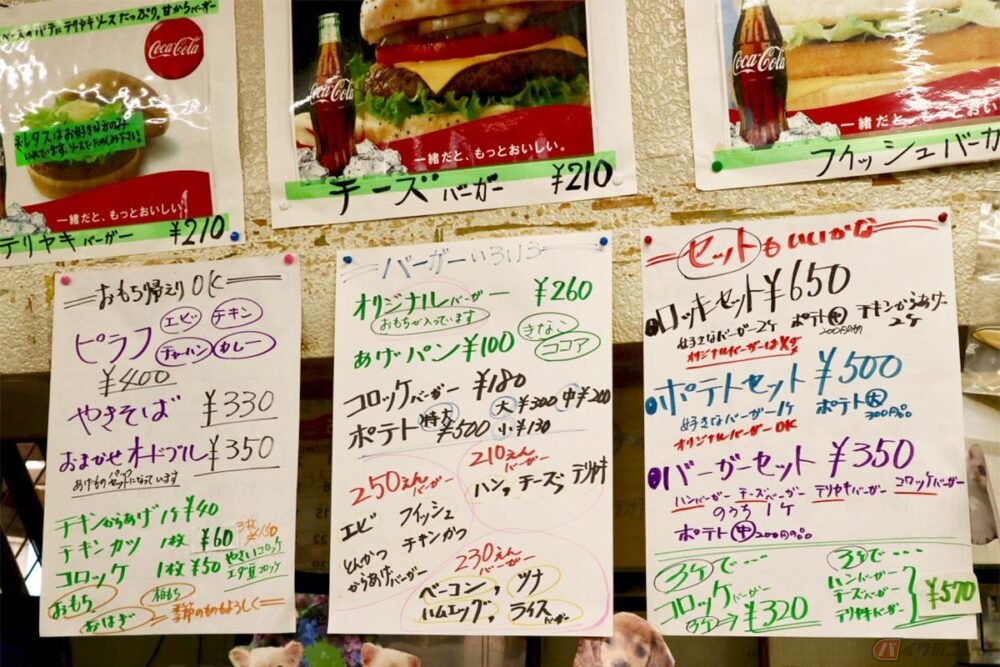 ベースのパテにテリヤキソースたっぷり。甘からバーガー
Coca-Cola
※レタスはお好きな方のみ
入れています。ソースでたのしみ下さい。
一緒だと、もっとおいしい。
テリヤキバーガー ¥210
Coca-Cola
一緒だと、もっとおいしい。
チーズバーガー ¥210
Coca-Cola
一緒だと、もっとおいしい。
フィッシュバーガー
おもち帰えりOK
ピラフ エビ チキン
チャーハン カレー
¥400
やきそば ¥330
おまかせオードブル ¥350
あげものパックセットになっています
チキンからあげ 1ケ ¥40
チキンカツ 1枚 ¥60 3枚¥150
コロッケ 1枚 ¥50 やさいコロッケ
エダ豆コロッケ
おもち 柏もち
おはぎ 季節のものもよろしく
バーガーいろいろ
オリジナルバーガー ¥260
おもちが入っています
あげパン ¥100 きなこ
ココア
コロッケバーガー ¥180
ポテト 特大 ¥500 大 ¥300 中 ¥200
小 ¥130
250えんバーガー
エビ フィッシュ
とんかつ チキンかつ
からあげバーガー
210えんバーガー
ハン, チーズ, テリヤキ
230えんバーガー
ベーコン, ツナ
ハムエッグ, ライスバーガー
セットもいいかな
ロッキーセット ¥650
好きなバーガー2ケ ポテト中 200円分 チキンからあげ2ケ
オリジナルバーガーはダメ
ポテトセット ¥500
好きなバーガー1ケ ポテト大 300円分
オリジナルバーガーOK
バーガーセット ¥350
ハンバーガー チーズバーガー テリヤキバーガー コロッケバーガー
のうち1ケ
ポテト中 200円分
3ケで…
コロッケ
3ケ→ ¥320
3ケで…
ハンバーガー
チーズバーガー
テリヤキバーガー
¥570
バイクのニュース